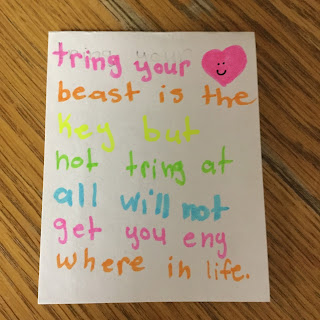 tring your
beast is the
key but
not tring at
all will not
get you eng
where in life.